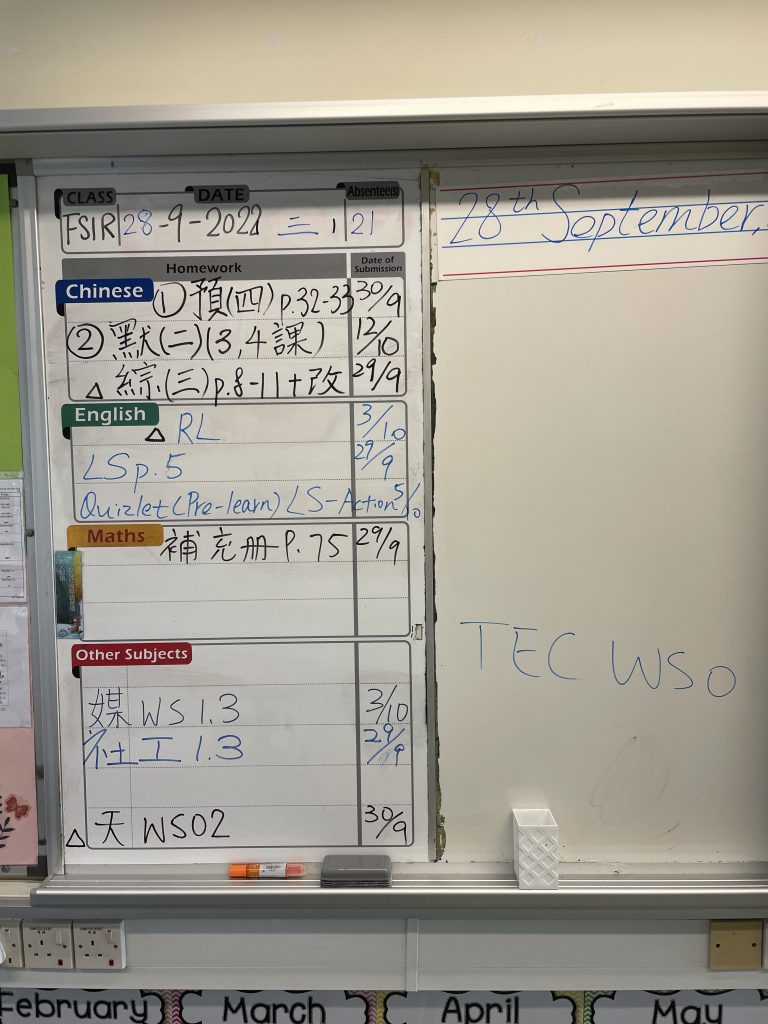 CLASS DATE Absentee(s)
28-9-2022 三 21
28th September,
Homework Date of Submission
Chinese ①預(四)p.32-33 30/9
②默(二)(3,4課) 12/10
△ 綜(三)p.8-11+改 29/9
English △ RL 3/10
LS p.5 29/9
Quizlet (Pre-learn) LS-Action 5/10
Maths 補充册 P.75 29/9
Other Subjects
媒 WS 1.3 3/10
社工 1.3 29/9
△ 天 WS02 30/9
TEC WS0
February March April May